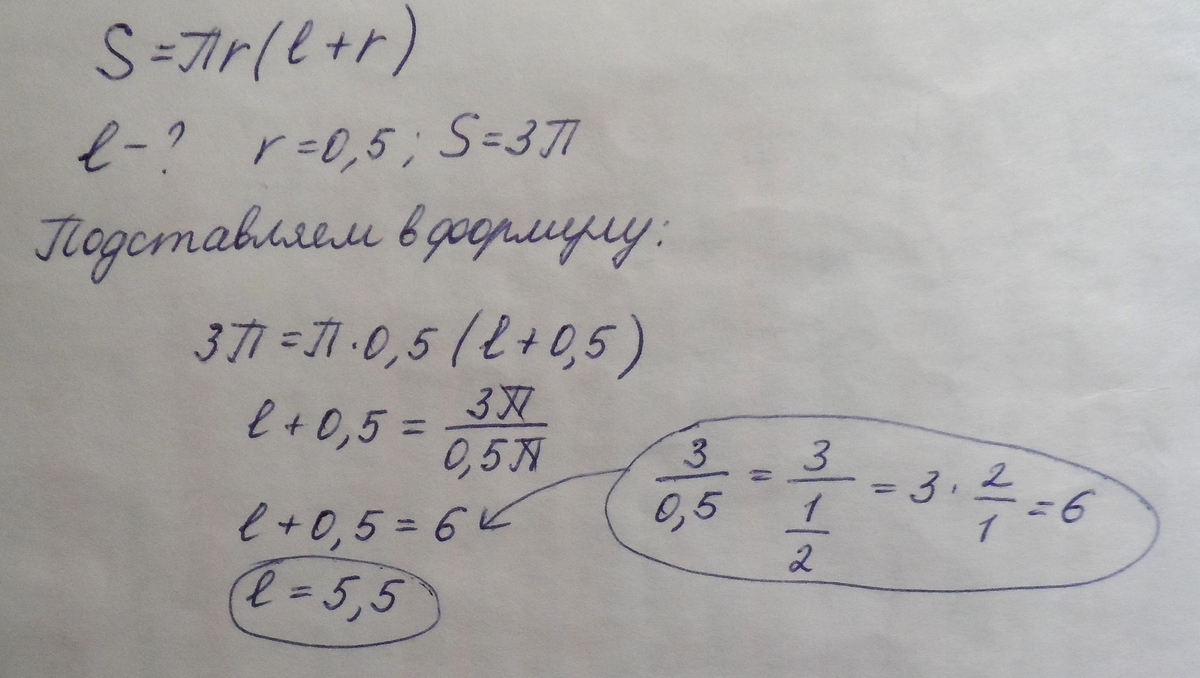 S=πr(l+r)
l-? r=0,5; S=3π
Подставляем в формулу:
3π=π·0,5(l+0,5)
l+0,5=3π/0,5π
l+0,5=6
3/0,5=3/(1/2)=3·2/1=6
l=5,5